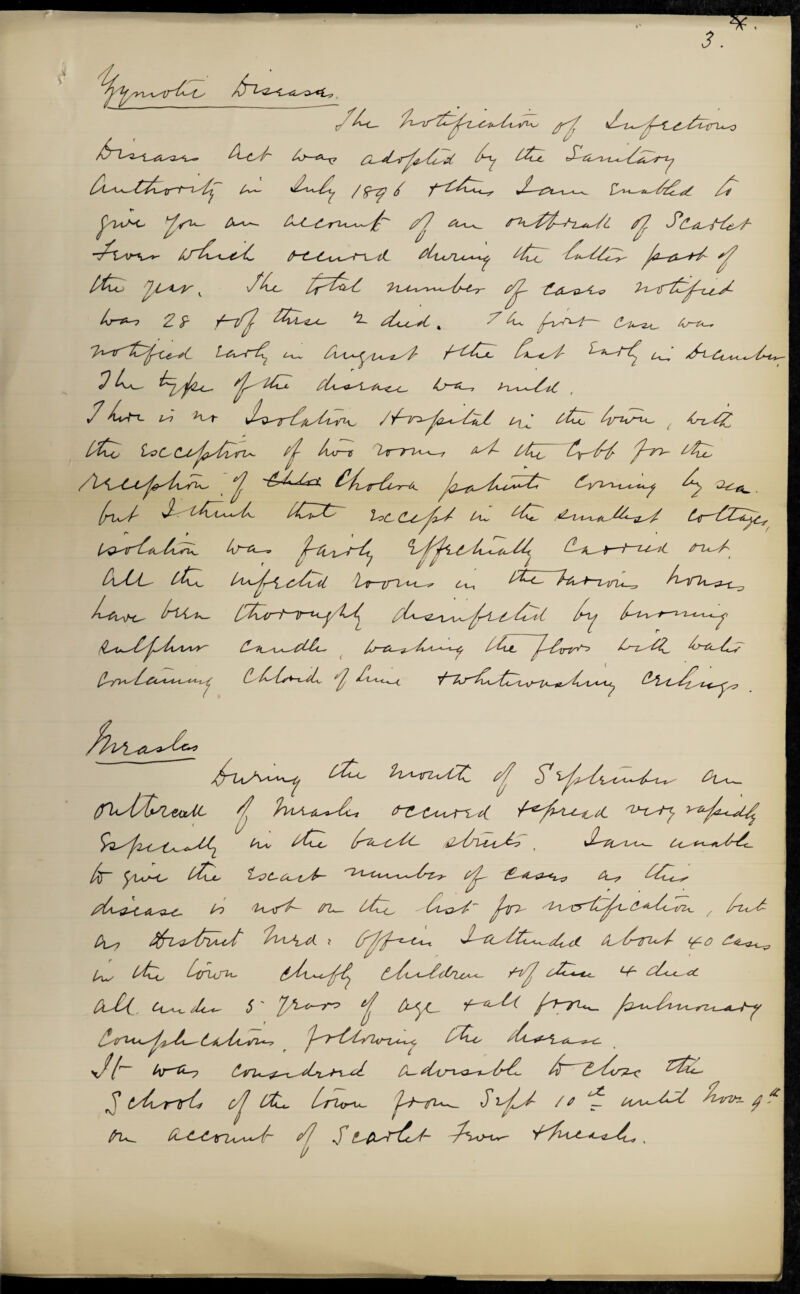 4.
3.
Zymotic Diseases.
The Notification of Infectious
Diseases Act was adopted by the Sanitary
Authority in July 1896 & thus I am enabled to
give you an account of an outbreak of Scarlet
Fever which occured during the latter part of
the year. The total number of cases notified
was 28 & of these 2 died. The first case was
notified early in August & the last early in December.
The type of the disease was mild.
There is no Isolation Hospital in the town, with
the exception of two rooms at the Cobb for the
reception of Chlor Cholera patients coming by sea.
but I think that except in the smallest cottages,
isolation was fairly effectually carried out.
All the infected rooms in the various houses
have been thoroughly disinfected by burning
sulphur candle, washing the floors with water
containing Chloride of Lime & whitewashing ceilings.
Measles
During the month of September an
outbreak of Measles occured & spread very rapidly
especially in the back streets. I am unable
to give the exact number of cases as this
disease is not on the list for notification, but
as District Med: Officer I attended about 40 cases
in the town chiefly children & of these 4 died
all under 5 years of age & all from pulmonary
complications, following the disease.
It was considered advisable to close the
Schools of the town from Sept 10th until Nov 9th
on account of Scarlet Fever & Measles.